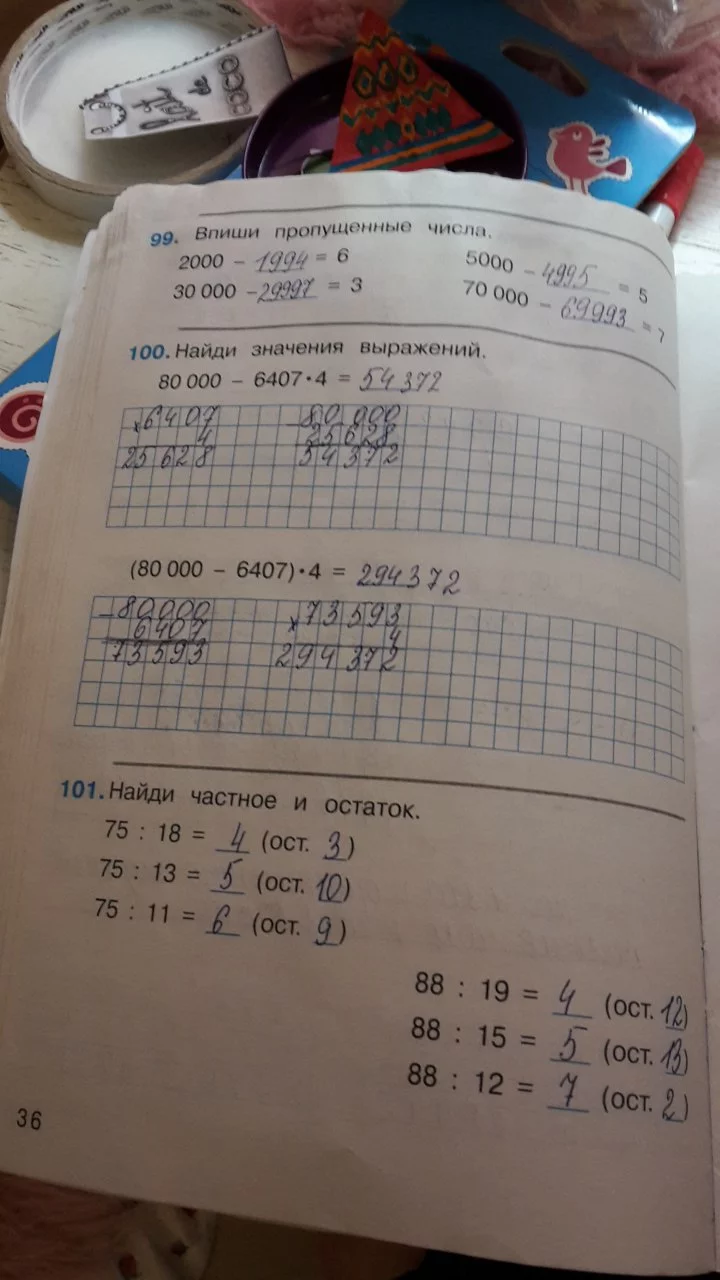 99. Впиши пропущенные числа.
2000 – 1994 = 6
5000 – 4995 = 5
30 000 – 29997 = 3
70 000 – 69993 = 7
100. Найди значения выражений.
80 000 – 6407 · 4 = 54 372
×6407 –80 000
4 25628
25628 54372
(80 000 – 6407) · 4 = 294372
–80000 ×73593
6407 4
73593 294372
101. Найди частное и остаток.
75 : 18 = 4 (ост. 3)
75 : 13 = 5 (ост. 10)
75 : 11 = 6 (ост. 9)
88 : 19 = 4 (ост. 12)
88 : 15 = 5 (ост. 13)
88 : 12 = 7 (ост. 2)
36